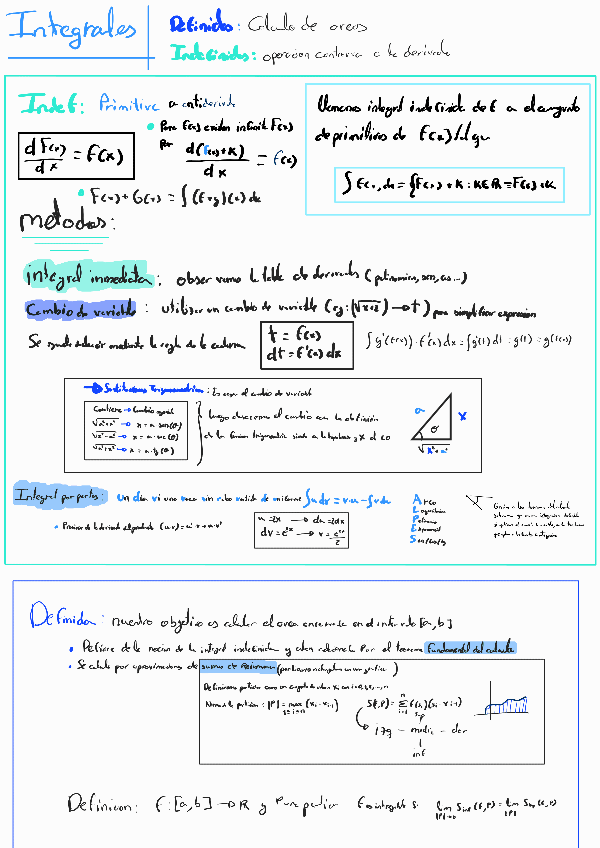 Integrales
Definidas: Calculo de areas
Indefinidas: operacion contraria a la derivada
Indef: Primitiva o antiderivada
dF(x)/dx = f(x)
• Para f(x) existen infinitas F(x)
por d(F(x)+K)/dx = f(x)
• F(x)+G(x) = ∫(f+g)(x) dx
Llamamos integral indefinida de f a el conjunto
de primitivas de f(x)
∫f(x) dx = {F(x) + K : K∈R = F(x)+K
metodos:
integral inmediata: observamos la tabla de derivadas (polinomica, sen, cos...)
Cambio de variable: utilizar un cambio de variable (eg: → t) para simplificar expresion
Se puede deducir mediante la regla de la cadena
t = f(x)
dt = f'(x) dx
∫g'(f(x))·f'(x) dx = ∫g'(t) dt = g(t) = g(f(x))
→ Sustituciones Trigonometricas: Es como el cambio de variable
Contiene → Cambio
→ x = a sen(θ)
→ x = a·sec(θ)
→ x = a·tg(θ)
luego deshacemos el cambio con la definición
de la funcion trigonometrica siendo a la hipotenusa y x el co
a
x
θ
Integral por partes: un dia vi una vaca sin rabo vestida de uniforme ∫u dv = v·u − ∫v du
• Proviene de la derivada del producto (u·v)' = u'·v + u·v'
u = 2x → du = 2dx
dv = e²ˣ → v = e²ˣ/2
Arco
Logaritmica
Polinomio
Exponencial
Sen/Cos/tg
Definida: nuestro objetivo es calcular el area encerrada en el intervalo [a,b]
• Difiere de la nocion de la integral indefinida y estan relacionada por el teorema fundamental del calculo
• Se calcula por aproximaciones de sumas de Riemann
Definimos particion como un conjunto de valores xi con i=0,1,2,...,n
Norma de particion: |P| = max (xi − xi-1)
1≤i≤n
S(f,P) = Σ f(xi)(xi − xi-1)
sup
izq − media − der
inf
Definicion: f: [a,b] → R y P una particion f es integrable si lim Sinf(f,P) = lim Ssup(f,P)
|P|→0
|P|